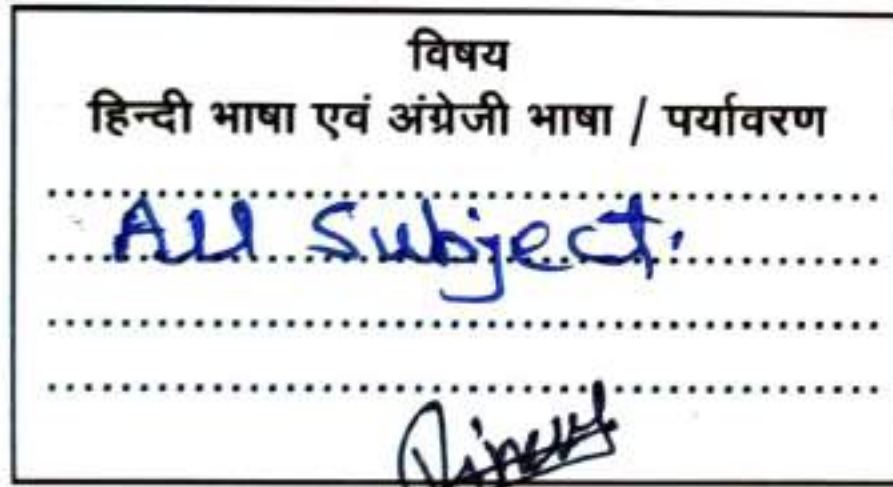 विषय
हिन्दी भाषा एवं अंग्रेजी भाषा / पर्यावरण
All Subject.